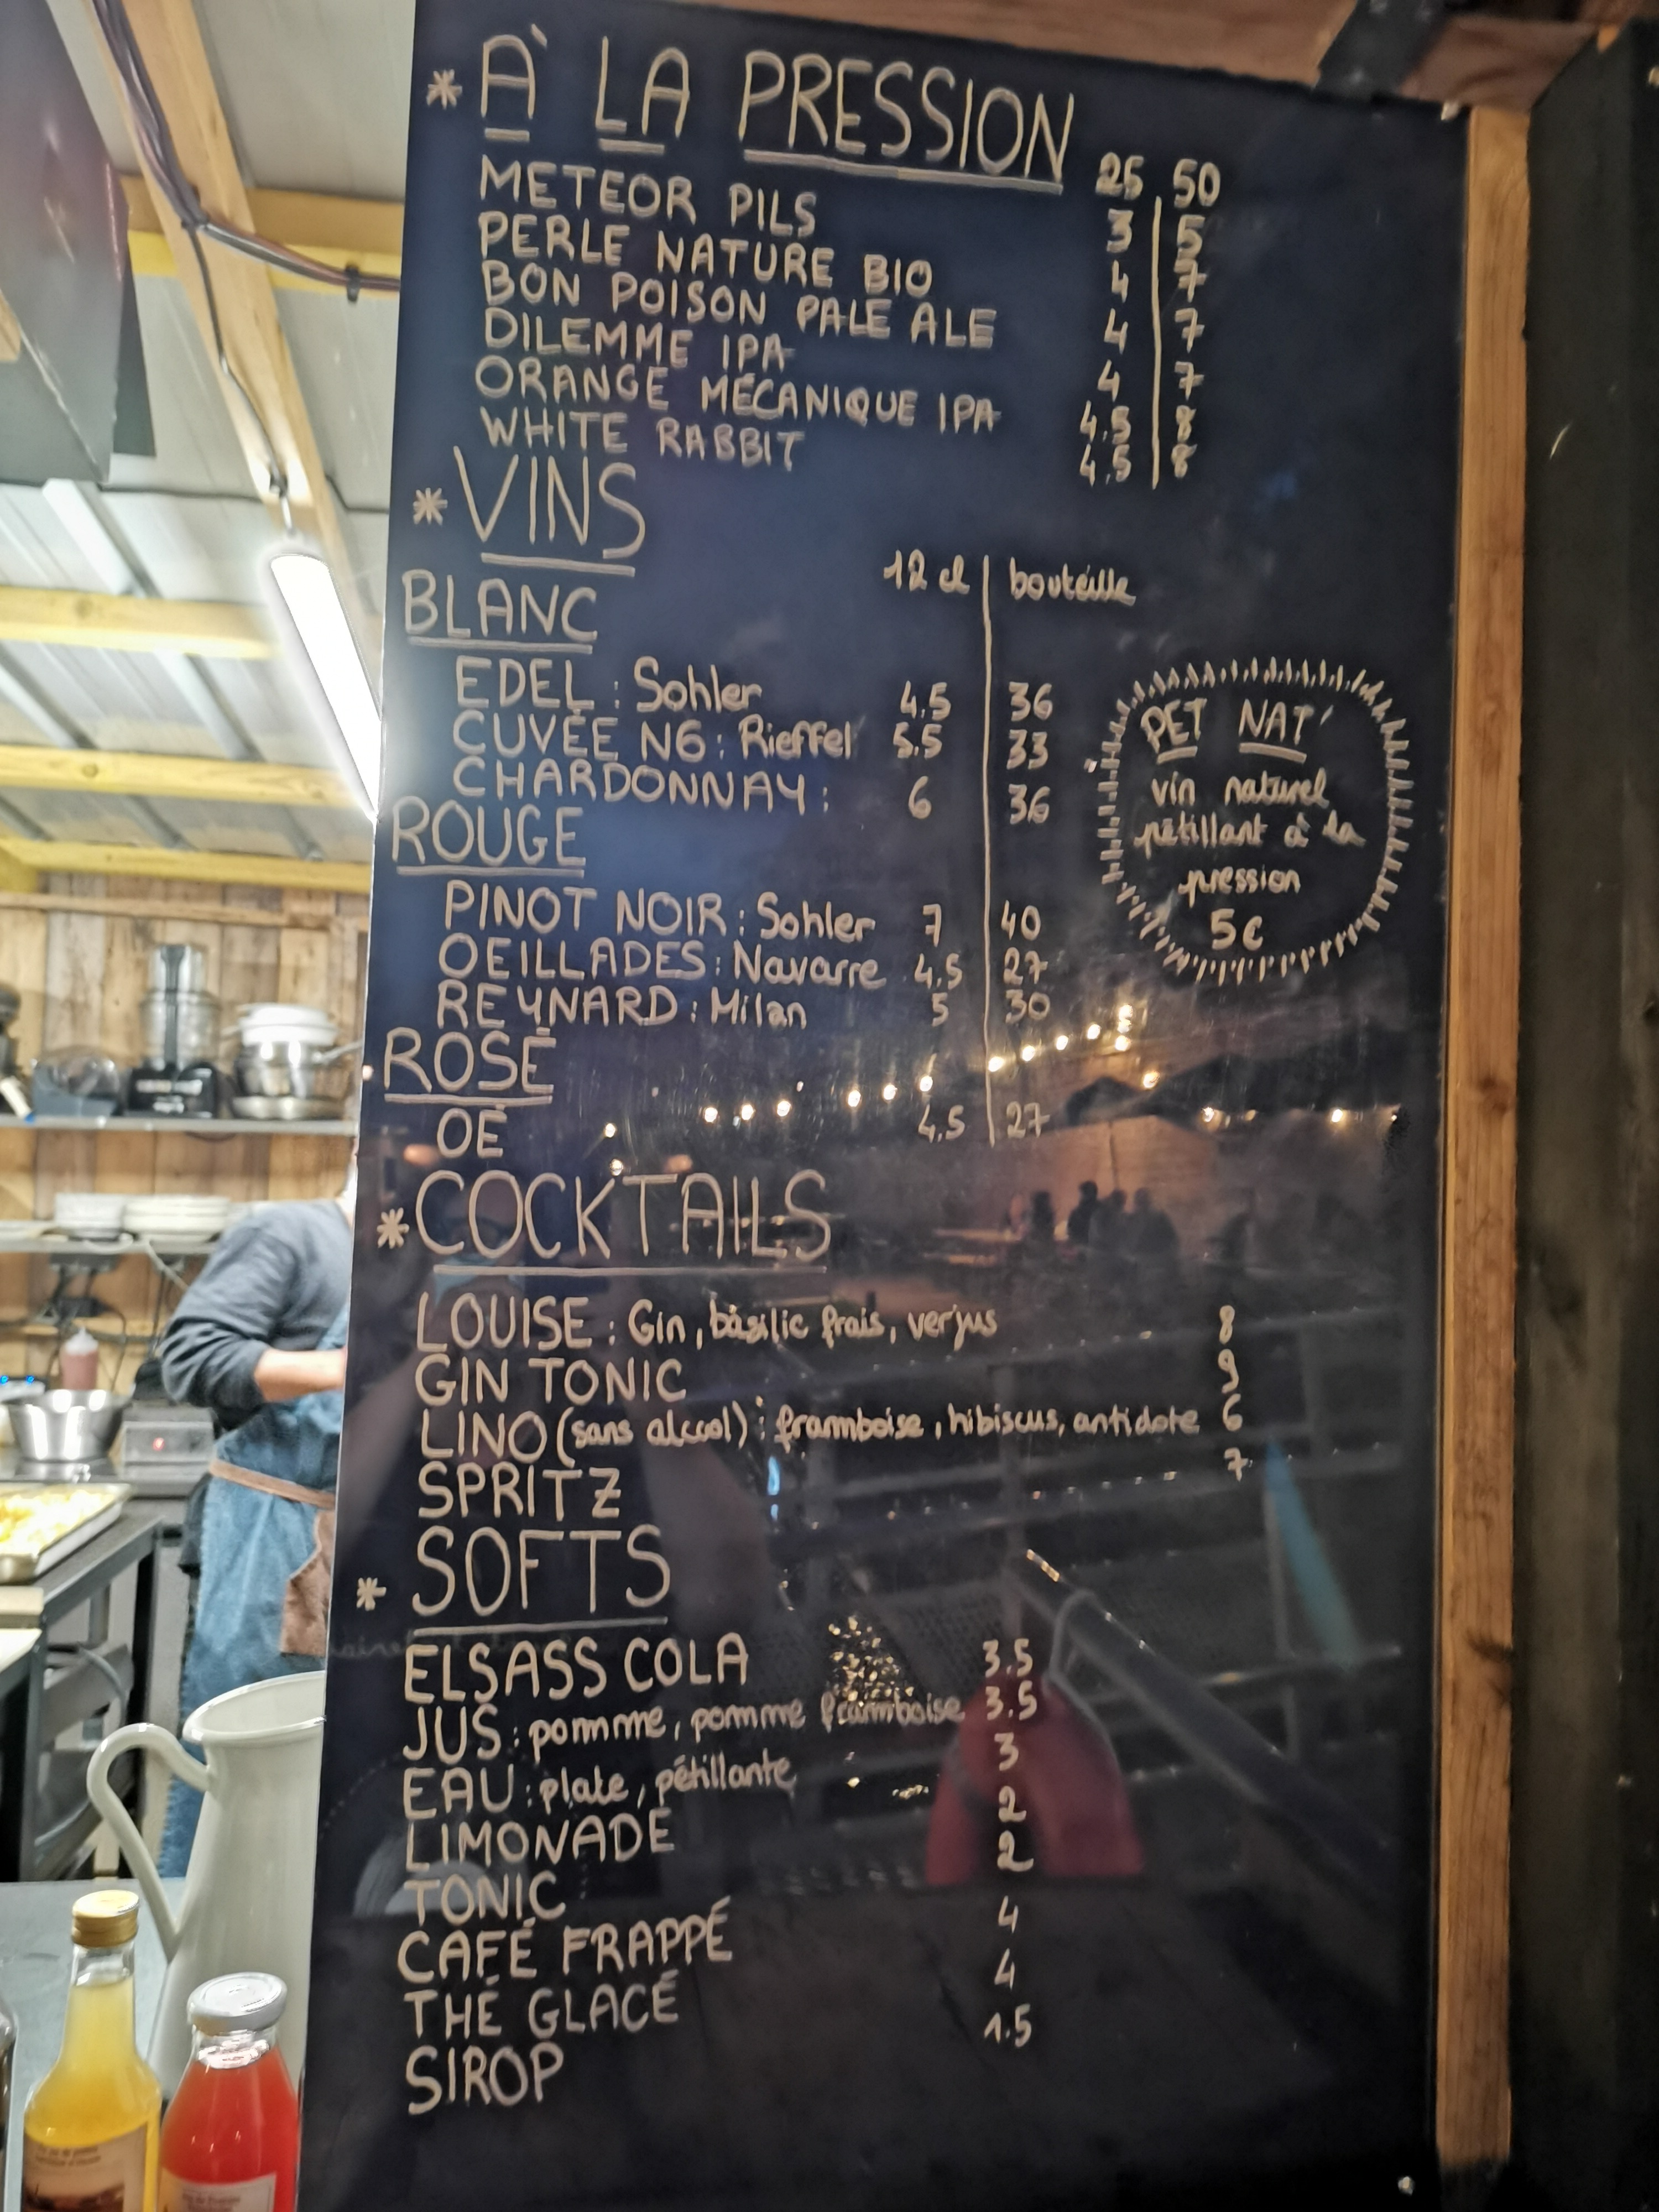 * À LA PRESSION
25 | 50
METEOR PILS 3 | 5
PERLE NATURE BIO 4 | 7
BON POISON PALE ALE 4 | 7
DILEMME IPA 4 | 7
ORANGE MÉCANIQUE IPA 4.5 | 8
WHITE RABBIT 4.5 | 8
* VINS
12 cl | bouteille
BLANC
EDEL : Sohler 4.5 | 36
CUVÉE N6 : Rieffel 5.5 | 33
CHARDONNAY : 6 | 36
ROUGE
PINOT NOIR : Sohler 7 | 40
OEILLADES : Navarre 4.5 | 27
REYNARD : Milan 5 | 30
ROSÉ
OÉ 4.5 | 27
PET NAT'
vin naturel
pétillant à la
pression
5€
* COCKTAILS
LOUISE : Gin, basilic frais, verjus 8
GIN TONIC 9
LINO (sans alcool) : framboise, hibiscus, antidote 6
SPRITZ 7
* SOFTS
ELSASS COLA 3.5
JUS : pomme, pomme framboise 3.5
EAU : plate, pétillante 3
LIMONADE 2
TONIC 2
CAFÉ FRAPPÉ 4
THÉ GLACÉ 4
SIROP 1.5